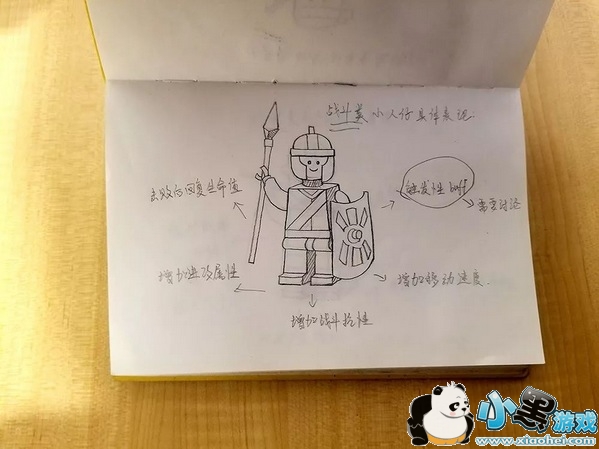 战斗类小人仔具体表现
击败后回复生命值
触发性buff
需要讨论
增加进攻属性
增加移动速度
增加战斗抗性
小黑游戏
www.xiaohei.com